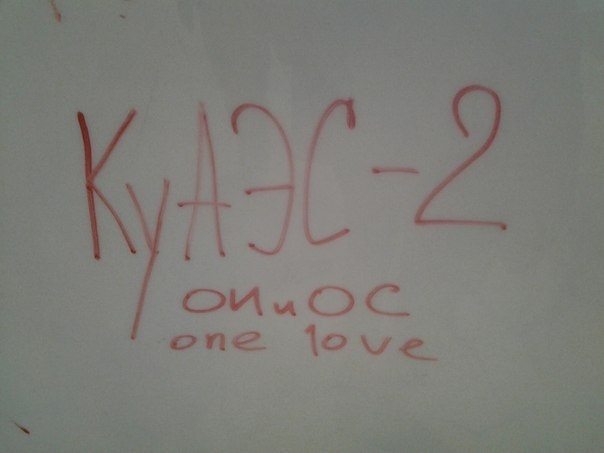 КуАЭС-2
ОИиОС
one love